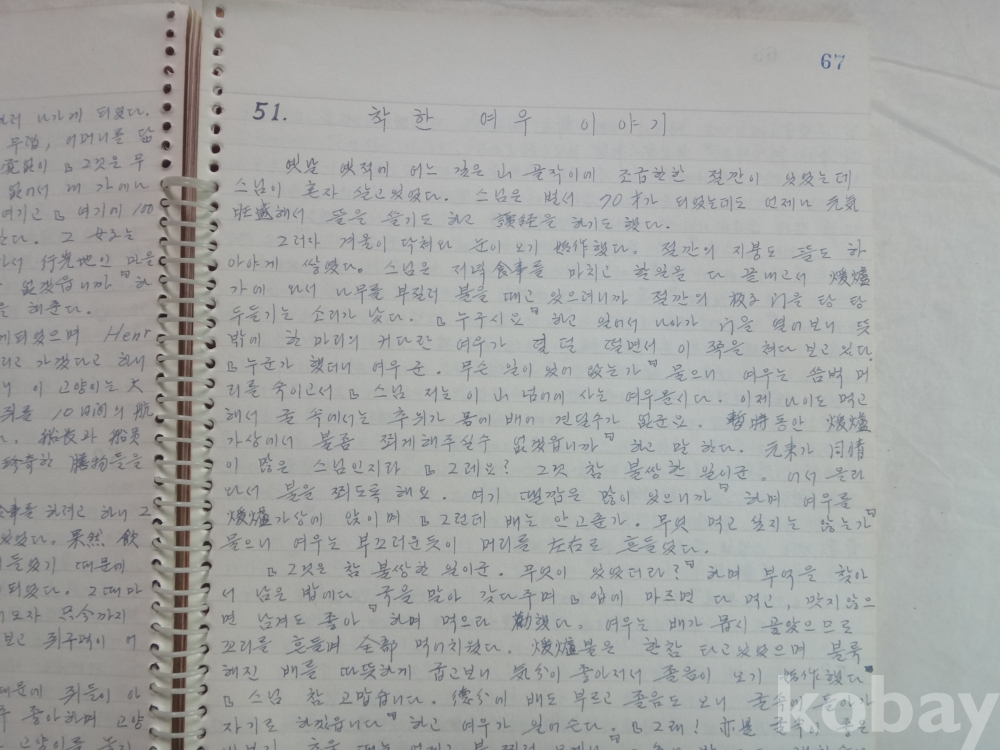 67
51. 착한 여우 이야기
옛날 옛적에 어느 깊은 山 골짜기에 조그만한 절간이 있었는데
스님이 혼자 살고있었다. 스님은 벌써 70才가 되었는데도 언제나 元気
旺盛해서 들을 즐기도 하고 讀経을 하기도 했다.
그러자 겨울이 닥쳐와 눈이 오기 始作했다. 절간의 지붕도 들도 하
아얗게 쌓였다. 스님은 저녁食事를 마치고 할일을 다 끝내고서 煖爐
가에 와서 나무를 부질러 불을 때고 있으려니까 절간의 板子门을 탕탕
두들기는 소리가 났다. 「누구시요」 하고 일어서 나아가 门을 열어보니 뜻
밖에 한 마리의 커다란 여우가 덜덜 떨면서 이 쪽을 쳐다보고 있다.
「누군가 했더니 여우군. 무슨 일이 있어 왔는가」 물으니 여우는 끔벅 머
리를 숙이고서 「스님 저는 이 山 넘어에 사는 여우올시다. 이제 나이도 먹고
해서 굴 속에서는 추위가 몸에 배어 견딜수가 없군요. 暫時동안 煖爐
가상에서 불좀 쬐게해주실수 없겠읍니까」 하고 말하다. 元来가 同情
이 많은 스님인지라 「그래요? 그것 참 불쌍한 일이군. 어서 올라
와서 불을 쬐도록 해요. 여기 땔깜은 많이 있으니까」 하며 여우를
煖爐가상에 앉이며 「그런데 배는 안고픈가. 무엇 먹고 싶지는 않는가」
물으니 여우는 부끄러운듯이 머리를 左右로 흔들었다.
「그것은 참 불쌍한 일이군. 무엇이 있었더라?」 하며 부엌을 찾아
서 남은 밥에다 국을 말아 갖다주며 「입에 마즈면 다 먹고, 맛지않으
면 남겨도 좋아」 하며 먹으라 勸했다. 여우는 배가 몹시 곯았으므로
꼬리를 흔들며 全部 먹어치웠다. 煖爐불은 한참 타고있었으며 불룩
해진 배를 따뜻하게 굽고보니 気分이 좋아져서 졸음이 오기 始作했다.
「스님 참 고맙습니다. 德分에 배도 부르고 졸음도 오니 굴속에 돌아가
자기로 하겠읍니다」 하고 여우가 일어슨다. 「그래!
러 나가게 되었다.
어머니를 닮
「그것은 무
여기고 「여기에 100
한다. 그 女子는
行先地인 마을
없겠읍니까」 하
을 해준다.
게되었으며 Henr
라고 가겠다고 하니
이 고양이는 大
쥐를 10日间의 航
船長과 船員
珍奇한 膳物들을
食事를 하려고 하니 그
있었다. 果然 飮
들었기 때문에
되었다. 그때마
모자 只今까지
보고 쥐구멍이 어
때문에 쥐들이 아
주 좋아하며 고양
고양이를 놓지
kobay